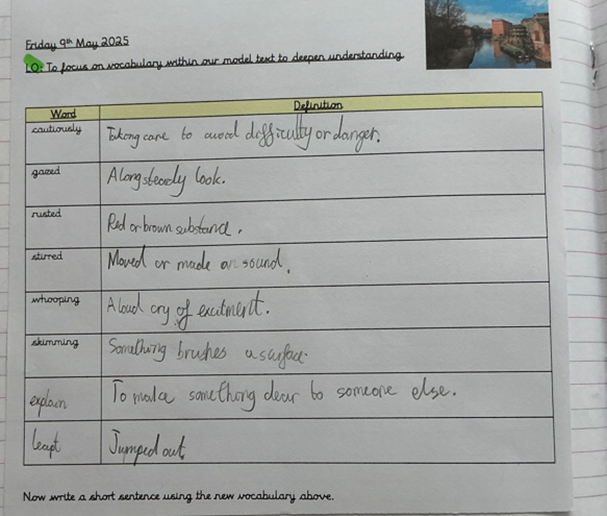 Friday 9th May 2025
LO: To focus on vocabulary within our model text to deepen understanding.
Word Definition
cautiously Takong care to avoid difficulty or danger.
gazed A long steady look.
rusted Red or brown substand.
stirred Moved or made a sound.
whooping A loud cry of excitment.
skimming Something brushes a surface.
explain To make something clear to someone else.
leapt Jumped out
Now write a short sentence using the new vocabulary above.